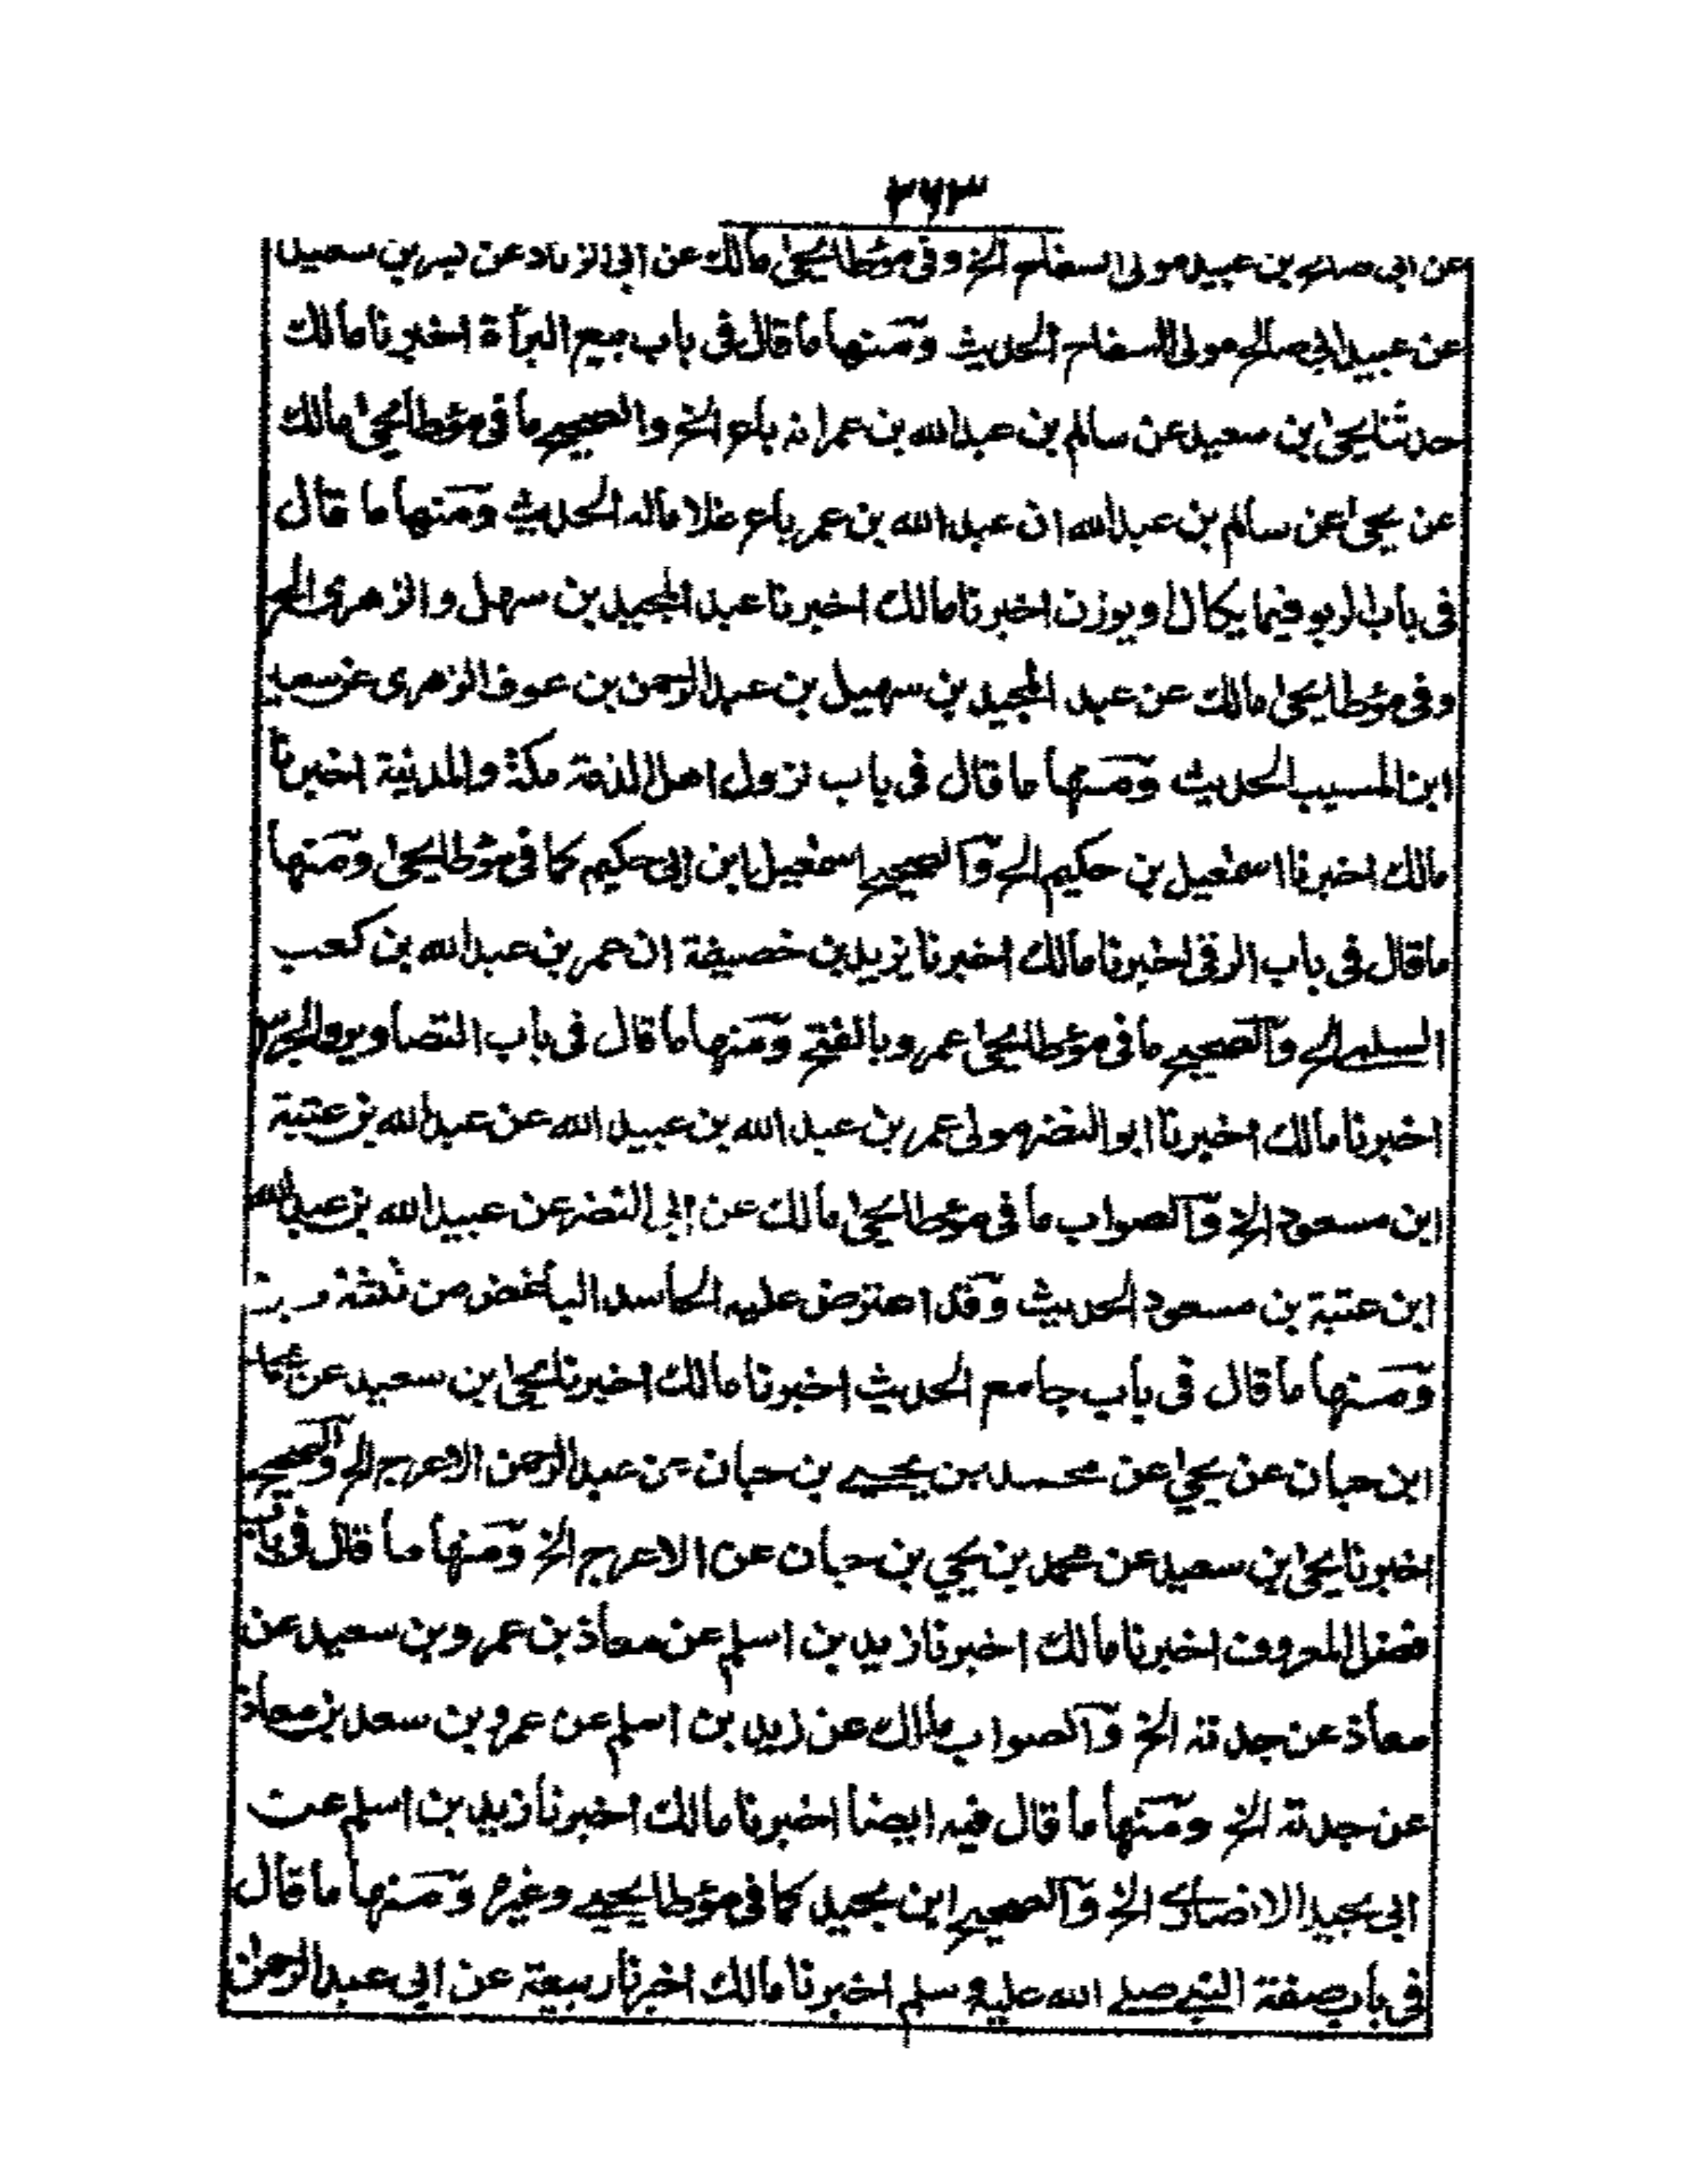 ٣٦٣
عن ابى صالح بن عبيد مولى السفاح الخ وفى مؤطا يحيىٰ مالك عن ابى الزناد عن بسر بن سعيد
عن عبيد ابى صالح مولى السفاح الحديث ومنها ما قال فى باب بيع البرأة اخبرنا مالك
حدثنا يحيىٰ بن سعيد عن سالم بن عبد الله بن عمر انه باع الخ والصحيح ما فى مؤطا يحيىٰ مالك
عن يحيىٰ عن سالم بن عبد الله ان عبد الله بن عمر باع غلاما له الحديث ومنها ما قال
فى باب الربو فيما يكال او يوزن اخبرنا مالك اخبرنا عبد المجيد بن سهل والزهرى الخ
وفى مؤطا يحيىٰ مالك عن عبد المجيد بن سهيل بن عبد الرحمن بن عوف الزهرى عن سعيد
ابن المسيب الحديث ومنها ما قال فى باب نزول اهل الذمة مكة والمدينة اخبرنا
مالك اخبرنا اسمٰعيل بن حكيم الخ والصحيح اسمٰعيل ابن ابى حكيم كما فى مؤطا يحيىٰ ومنها
ما قال فى باب الرقى اخبرنا مالك اخبرنا يزيد بن خصيفة ان عمر بن عبد الله بن كعب
السلمى الخ والصحيح ما فى مؤطا يحيىٰ عمرو بالفتح ومنها ما قال فى باب التصاوير والجرس
اخبرنا مالك اخبرنا ابو النضر مولى عمر بن عبد الله بن عبيد الله عن عبد الله بن عتبة
ابن مسعود الخ والصواب ما فى مؤطا يحيىٰ مالك عن ابى النضر عن عبيد الله بن عبد الله
ابن عتبة بن مسعود الحديث وقد اعترض عليه الحاسد الباغض من
ومنها ما قال فى باب جامع الحديث اخبرنا مالك اخبرنا يحيىٰ بن سعيد عن محمد
ابن حبان عن يحيىٰ عن محمد بن يحيى بن حبان عن عبد الرحمن الاعرج الخ والصحيح
اخبرنا يحيىٰ بن سعيد عن محمد بن يحيى بن حبان عن الاعرج الخ ومنها ما قال فى باب
فضل المعروف اخبرنا مالك اخبرنا زيد بن اسلم عن معاذ بن عمرو بن سعيد عن
معاذ عن جدته الخ والصواب مالك عن زيد بن اسلم عن عمرو بن سعد بن معاذ
عن جدته الخ ومنها ما قال فيه ايضا اخبرنا مالك اخبرنا زيد بن اسلم عن
ابى بجيد الانصارى الخ والصحيح ابن بجيد كما فى مؤطا يحيى وغيره ومنها ما قال
فى باب صفة النبى صلى الله عليه وسلم اخبرنا مالك اخبرنا ربيعة عن ابى عبد الرحمٰن